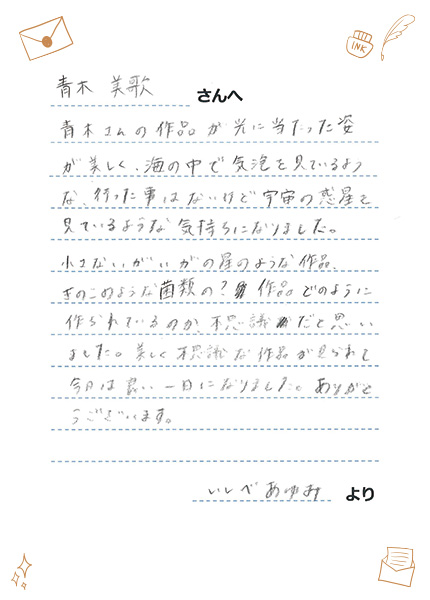 INK
青木 美歌 さんへ
青木さんの作品が光に当たった姿
が美しく、海の中で気泡を見ているよう
な、行った事はないけど宇宙の惑星を
見ているような気持ちになりました。
小さないがいがの星のような作品、
きのこのような菌類の？作品どのように
作られているのか、不思議だと思い
ました。美しく不思議な作品が見られて
今日は良い一日になりました。ありがと
うございます。
いしべあゆみ より